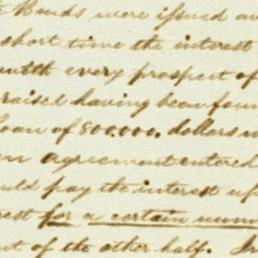 Bonds were issued an
short time the interest
with every prospect of
raised having been foun
loan of 500.000. dollars
an agreement entered
uld pay the interest up
rest for a certain num
of the other half. In